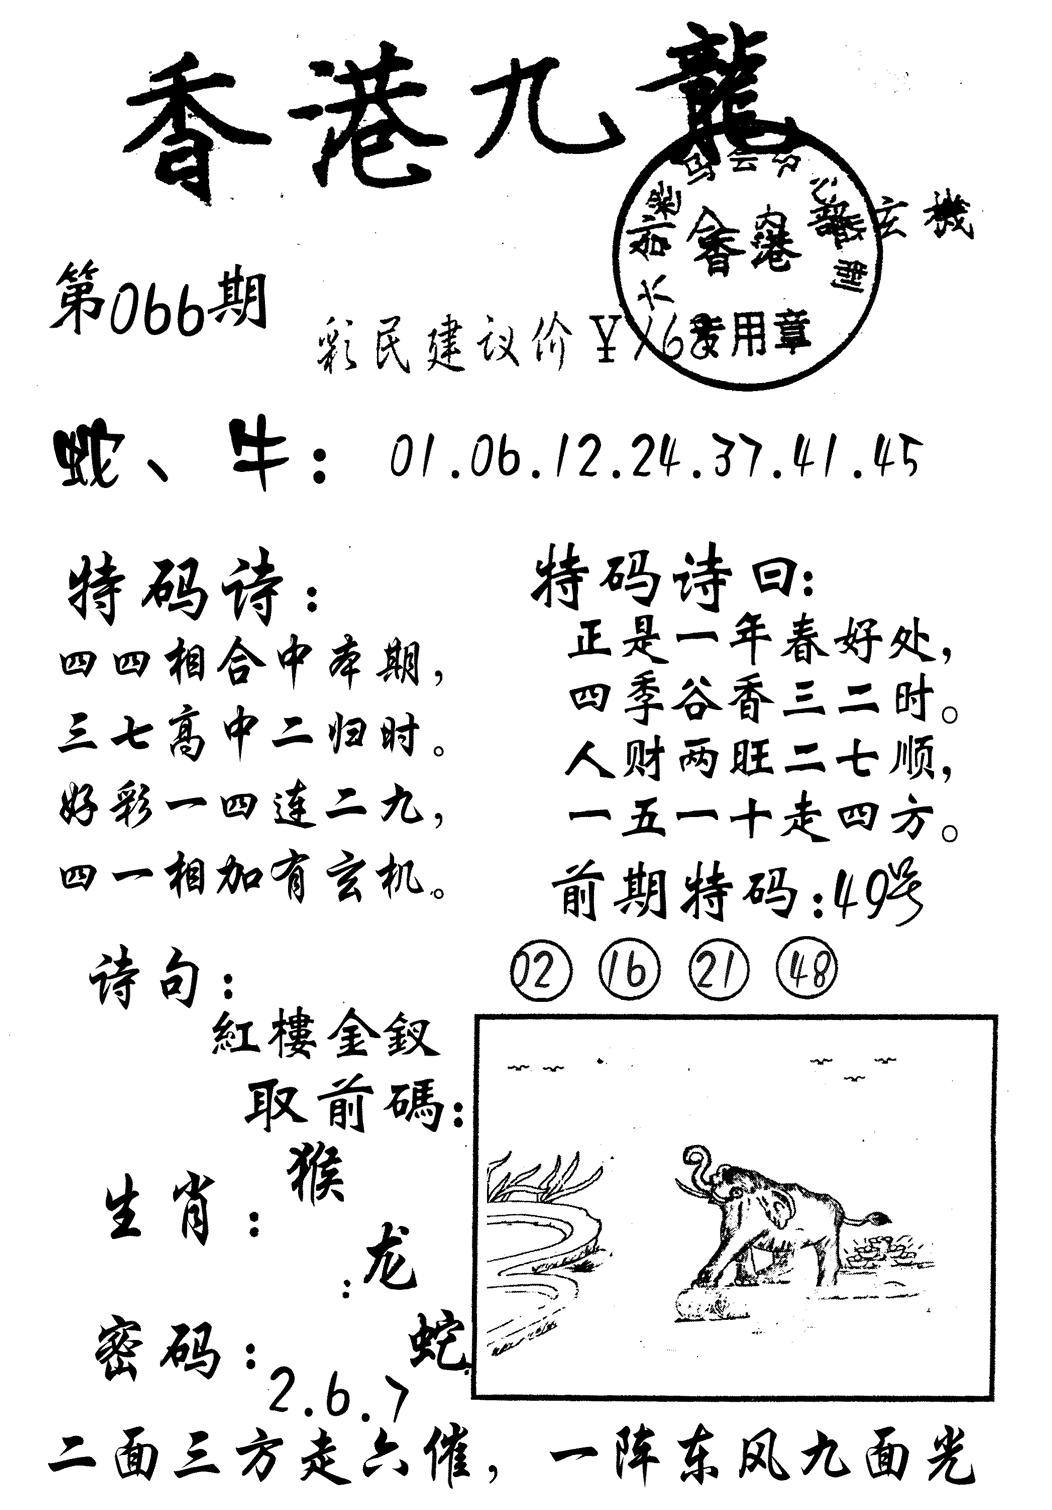 香港九龍
香港
玄機
第066期
彩民建议价¥168
专用章
蛇、牛：01.06.12.24.37.41.45
特码诗：
四四相合中本期，
三七高中二归时。
好彩一四连二九，
四一相加有玄机。
特码诗曰：
正是一年春好处，
四季谷香三二时。
人财两旺二七顺，
一五一十走四方。
前期特码：49号
02 16 21 48
诗句：
紅樓金釵
取前碼：
生肖：猴
：龙
蛇
密码：2.6.7
二面三方走六催，一阵东风九面光